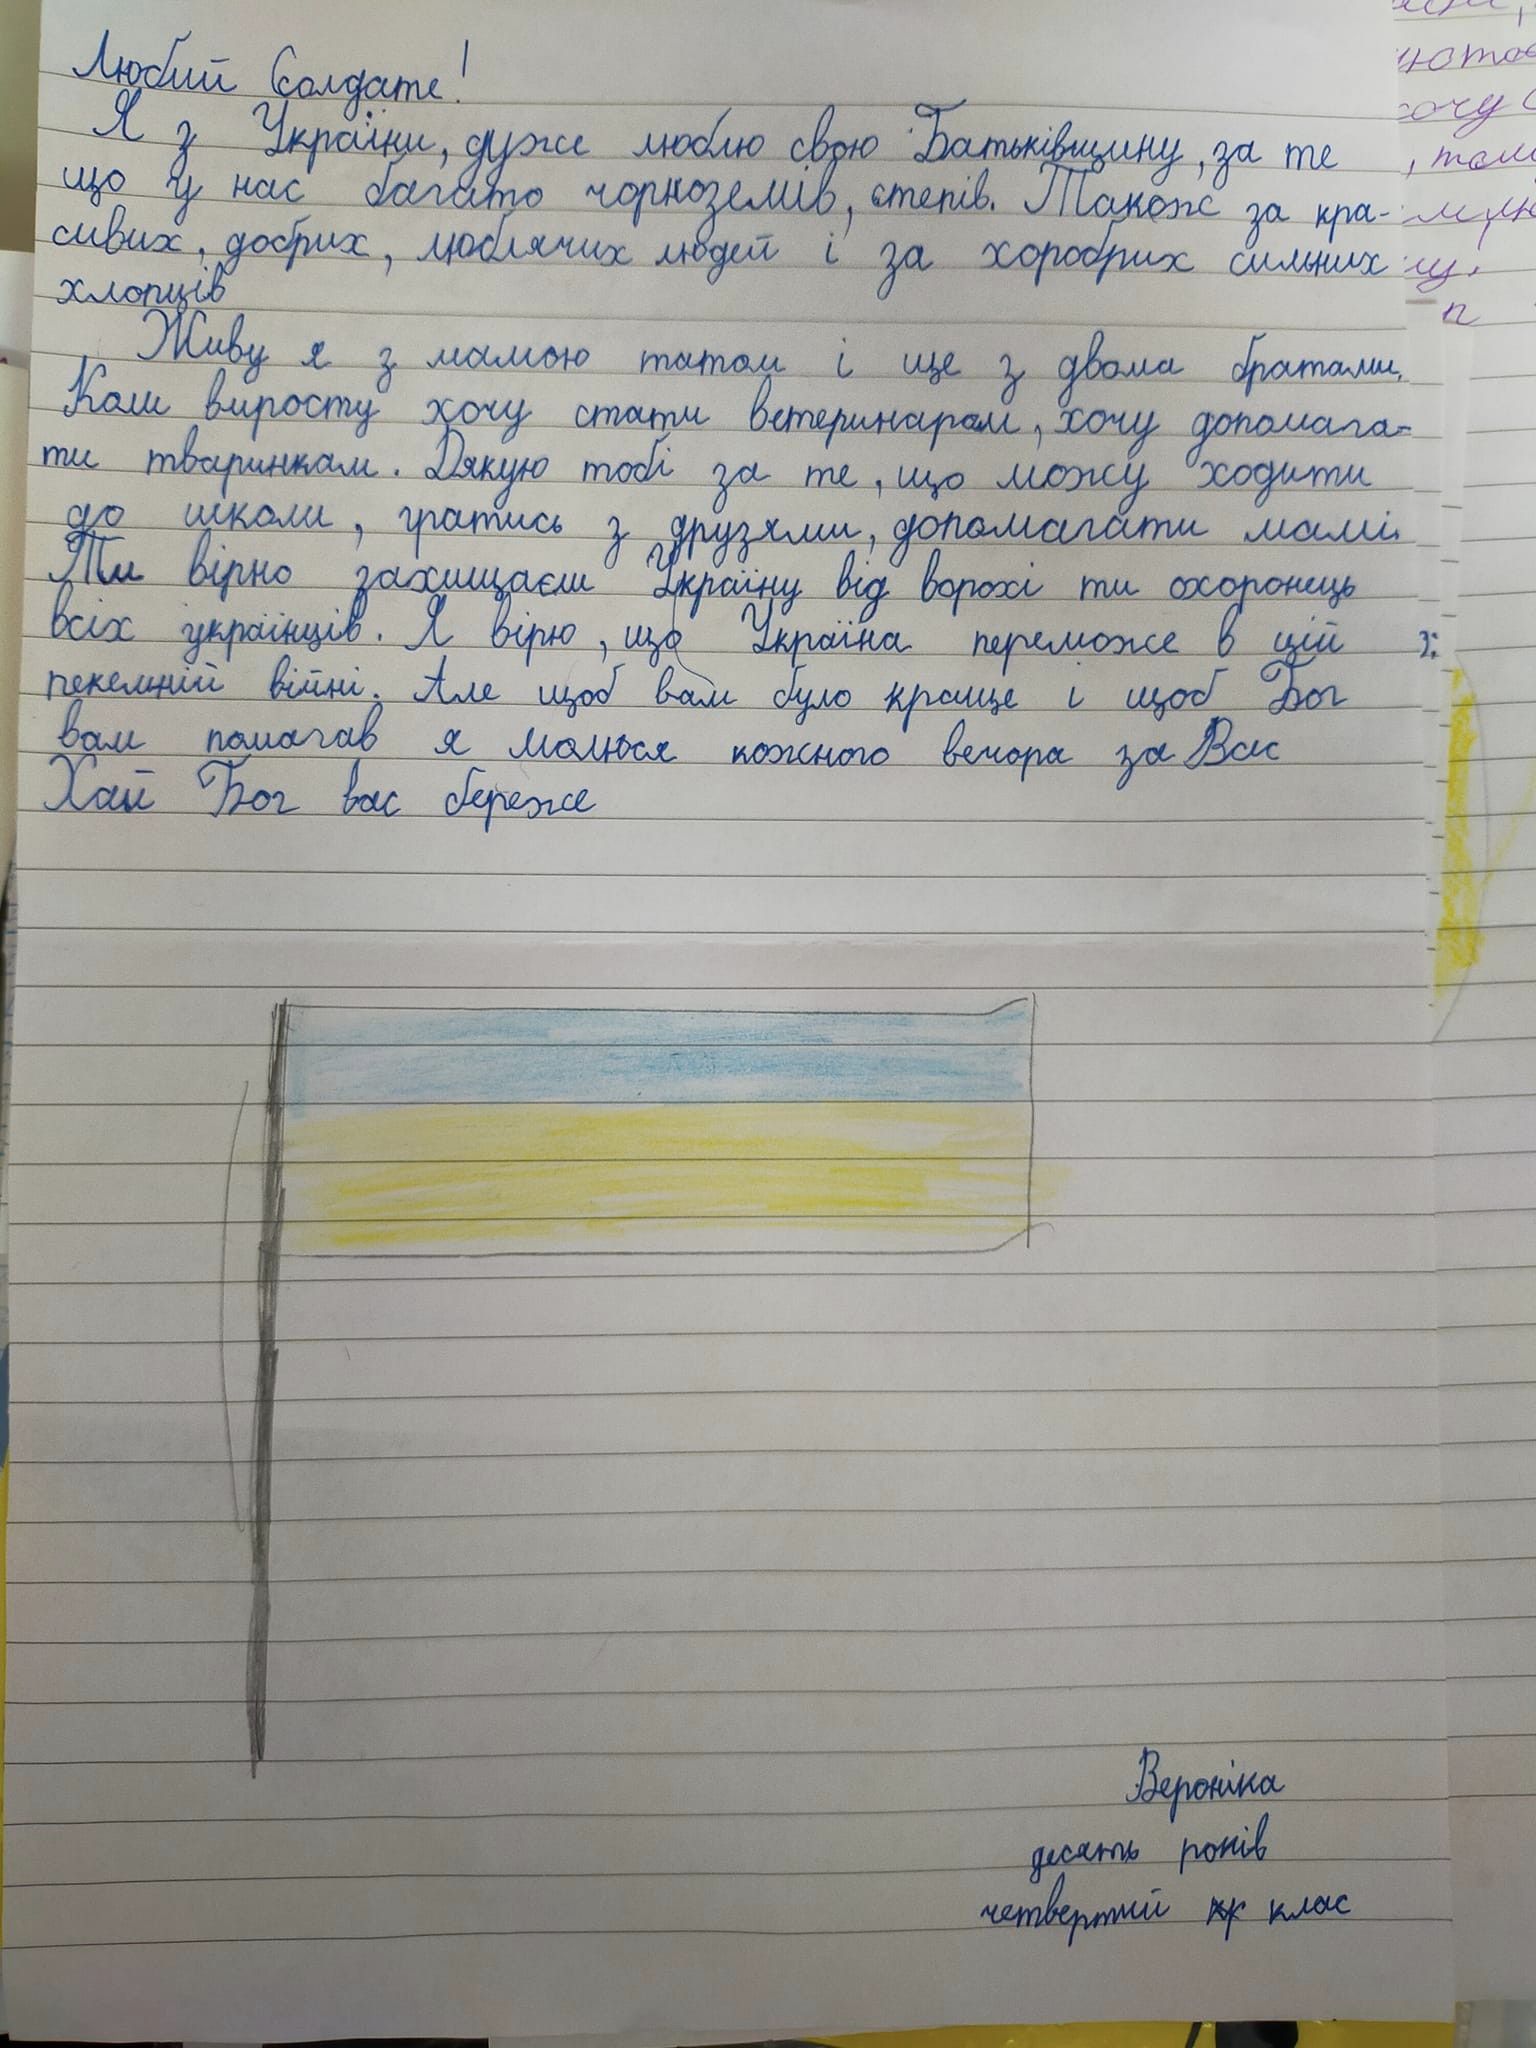 Любий Солдате!
Я з України, дуже люблю свою Батьківщину, за те
що у нас багато чорноземів, степів. Також за кра-
сивих, добрих, люблячих людей і за хоробрих сильних
хлопців
Живу я з мамою татом і ще з двома братами.
Коли виросту хочу стати ветеринаром, хочу допомага-
ти тваринкам. Дякую тобі за те, що можу ходити
до школи, гратись з друзями, допомагати мамі.
Ти вірно захищаєш Україну від ворохі ти охоронець
всіх українців. Я вірю, що Україна переможе в цій
пекельній війні. Але щоб вам було краще і щоб Бог
вам помагав я молюся кожного вечора за Вас
Хай Бог вас береже
Вероніка
десять років
четвертий клас